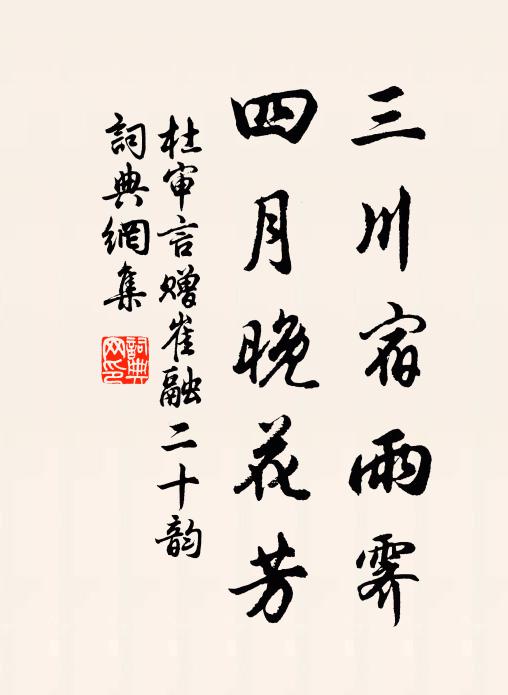 三川宿雨霽
四月晚花芳
杜审言赠崔融二十韵
詞典網集
詞典网印